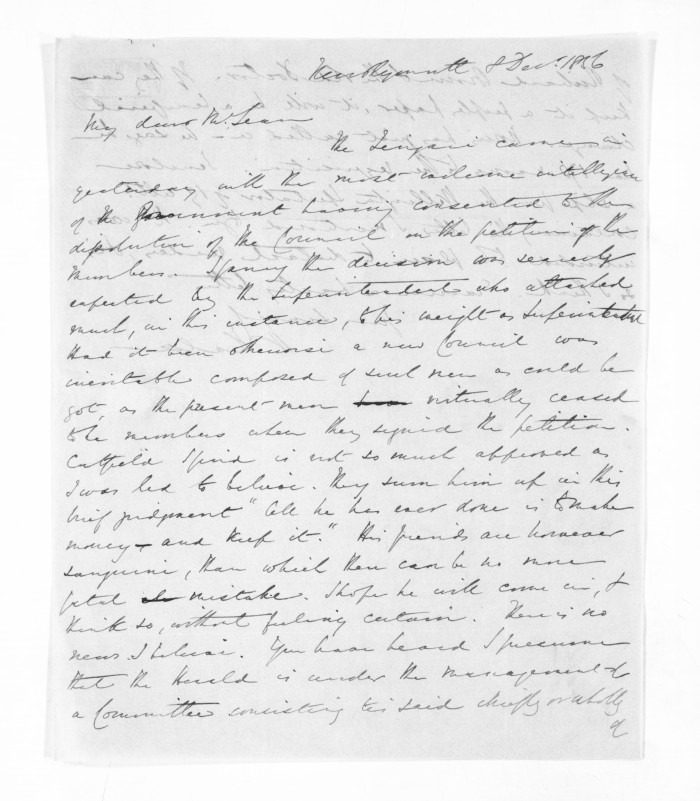 New Plymouth 8 Dec. 1856
My dear McLean
The Zingari came in
yesterday with the most welcome intelligence
of the Government having consented to the
dissolution of the Council on the petition of the
Members. I fancy the decision was scarcely
expected by the Superintendent who attached
much, in this instance, to his weight as Superintendent
Had it been otherwise a new Council was
inevitable composed of such men as could be
got, as the present men virtually ceased
to be members when they signed the petition.
Cutfield I find is not so much approved as
I was led to believe. They sum him up in this
brief judgment "all he has ever done is to make
money - and keep it." His friends are however
sanguine, than which there can be no more
fatal mistake. I hope he will come in, &
think so, without feeling certain. There is no
news I believe. You have heard I presume
that the Herald is under the management of
a Committee consisting tis said chiefly or wholly
of